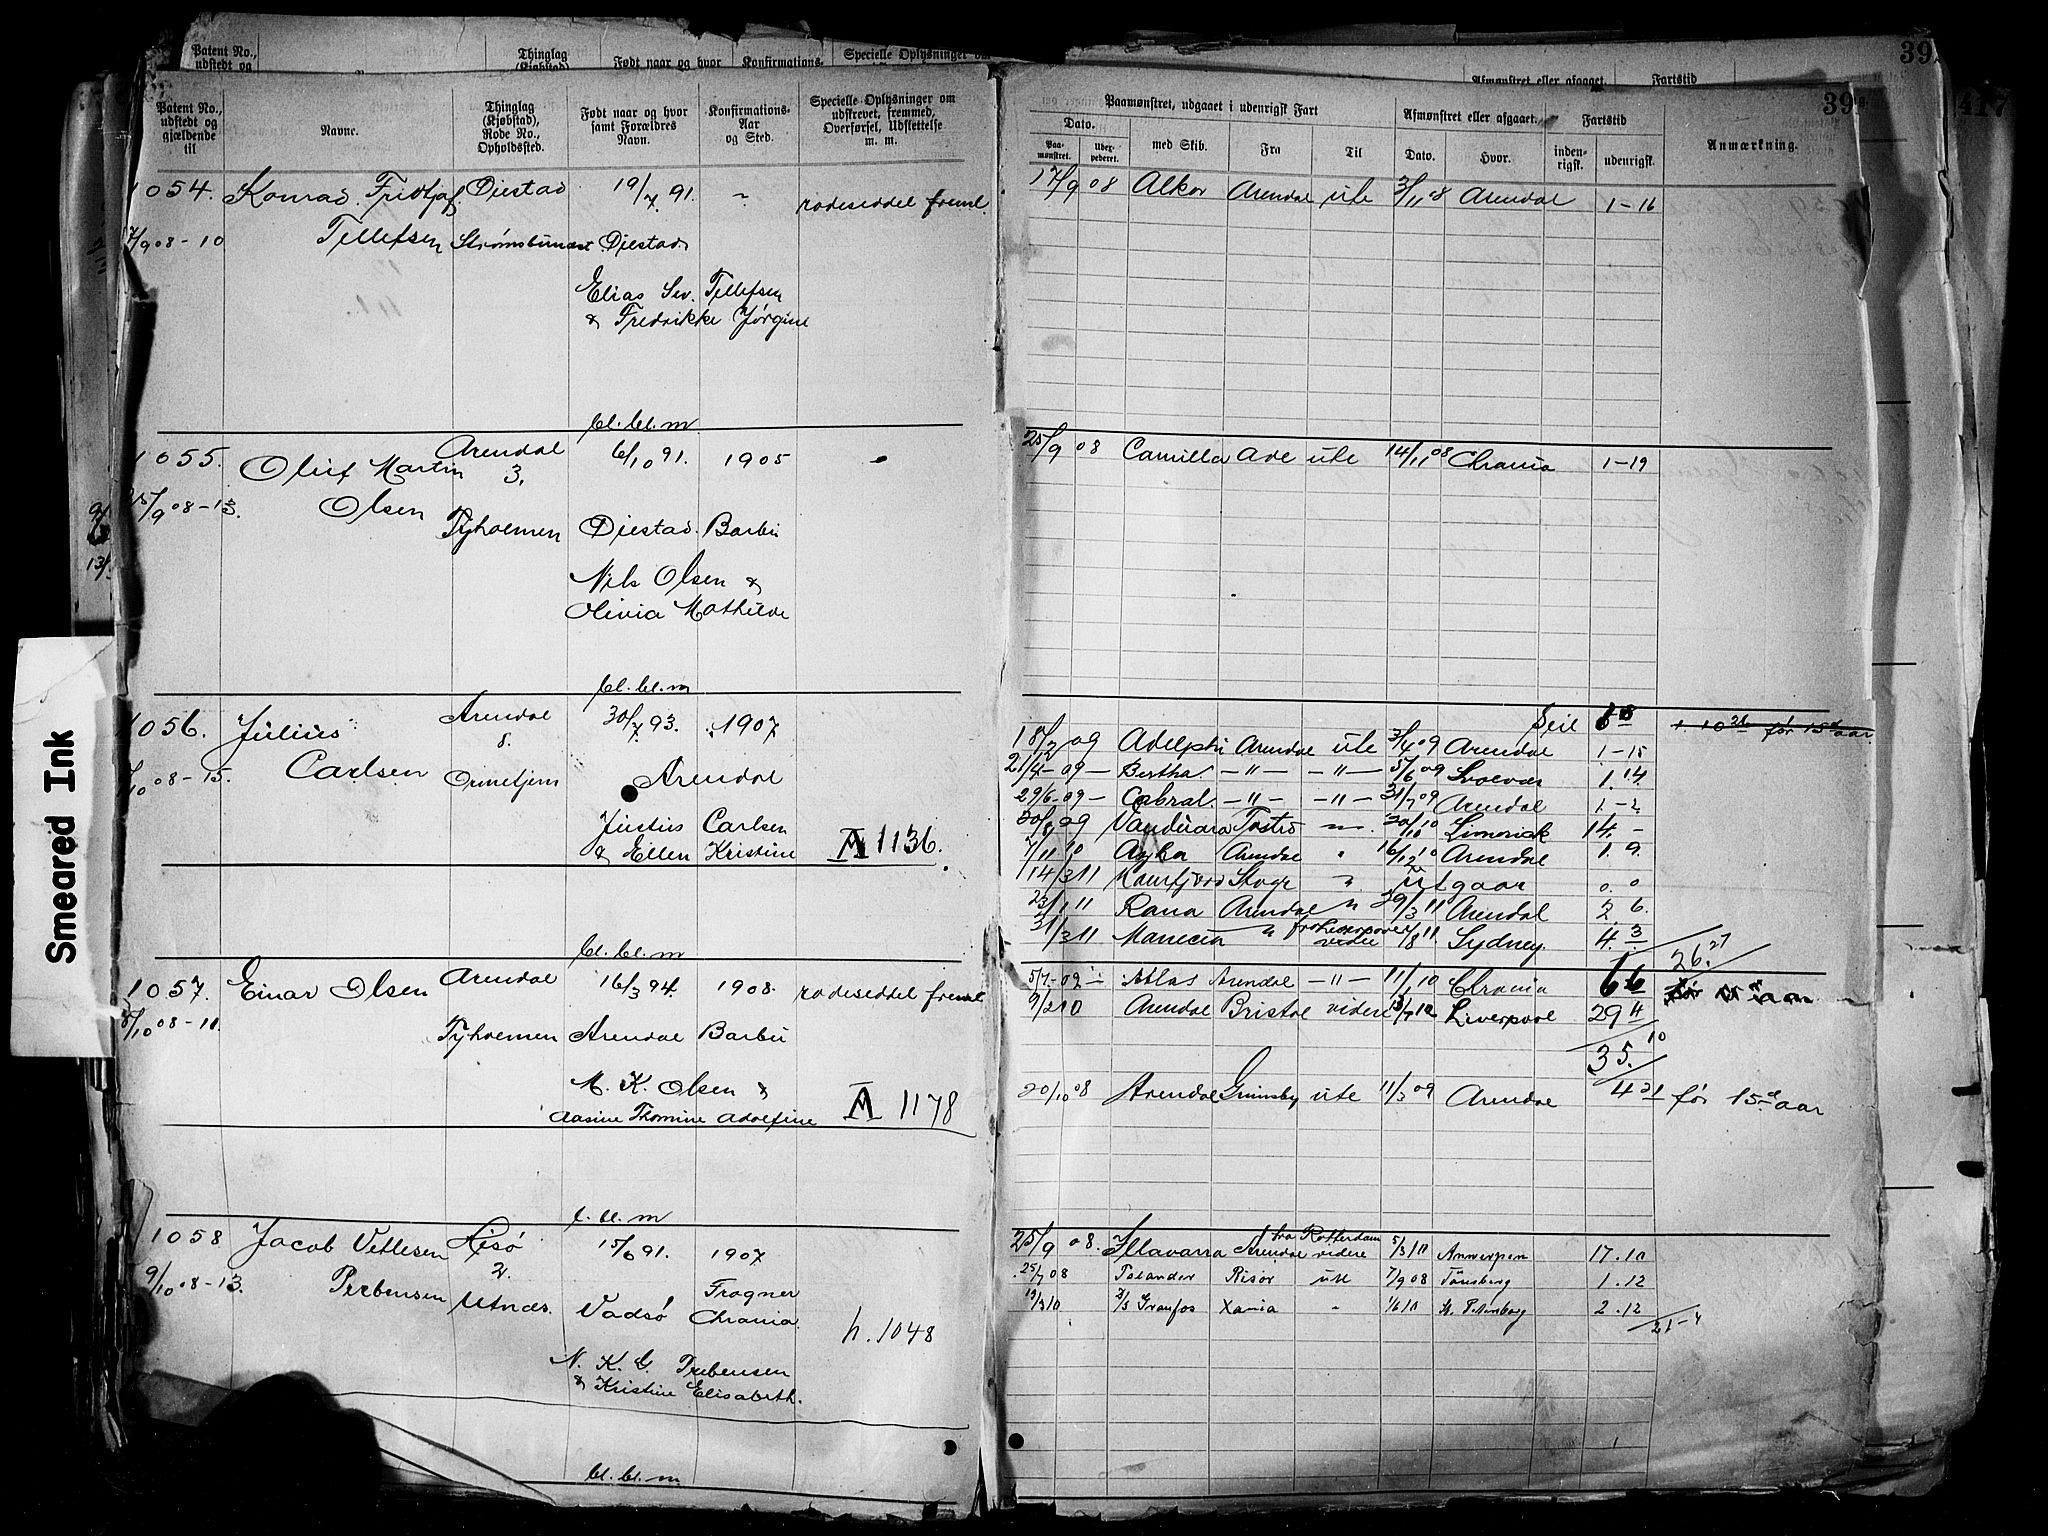 Patent No., udstedt og gjældende til
Navne.
Thinglag (Kjøbstad), Rode No., Opholdssted.
Født naar og hvor samt Forældres Navn.
Konfirmations-Aar og Sted.
Specielle Oplysninger om udstrevet, fremmed, Overførsel, Udslettelse m. m.
Paamønstret, udgaaet i udenrigsk Fart
Afmønstret eller afgaaet.
Fartstid
Anmærkning.
Dato.
Paa-mønstret.
med Skib.
Fra
Til
Dato.
Hvor.
inden-rigsk.
udenrigsk.
39
417
1054. Konrad Fridtjof Øiestad 19/7 91. rodeseddel freml.
17/9 08 Alkor Arendal ute 3/11 08 Arendal 1-16
7/9 08-10 Tellefsen Strømsbunæs Øiestad
Elias Sev. Tellefsen
& Fredrikke Jørgine
bl. bl. m
1055. Oluf Martin Arendal 3. 6/10 91. 1905
25/9 08 Camilla Are ute 14/11 08 Chrania 1-19
25/9 08-13. Olsen Tyholmen Øiestad Barbu
Nils Olsen &
Olivia Mathilde
bl. bl. m
1056. Julius Arendal 8. 30/7 93. 1907
Seil
1. 10 26 før 15d aar.
18/2 09 Adelphi Arendal ute 3/4 09 Arendal 1-15
/10 08-15. Carlsen Arendal
21/4-09- Bertha -"- -"- 5/6 09 1.14.
29/6-09- Cabral -"- -"- 31/7 09 Arendal 1-2
Justus Carlsen
30/8 09 Vanduara 20/10 10 Limerick 14.-
& Ellen Kristine A 1136.
7/11 10 Arendal " 16/12 10 Arendal 1.9.
14/3 11 Utgaar 0.0
23/1 11 Rana Arendal " 29/3 11 Arendal 2.6.
31/3 11 " fra Liverpool videre /8 11. Sydney 4.3
26. 27
bl. bl. m
1057. Einar Olsen Arendal 16/3 94. 1908. rodeseddel freml
5/7-09- Atlas Arendal -"- 11/1 10 Chrania 6 6
9/2 10 Arendal Bristol videre Liverpool 29 4
8/10 08-11. Tyholmen Arendal Barbu
35. 10
M. K. Olsen &
Aasine Thomine Adolfine A 1178
20/10 08 Arendal Grimsby ute 11/3 09 Arendal 4 21 før 15de aar
b. bl. m
1058 Jacob Vetlesen Hisø 2. 15/6 91. 1907
25/9 08. Illavarra Arendal fra Rotterdam videre 5/3 10 Antwerpen 17.10
9/10 08-13. Prebensen Utnæs. Vadsø Frogner Chrania. h. 1048
25/7 08 Talander Risør ute 7/9 08 Tønsberg 1.12
19/3 10 Granfos Xania " 1/6 10 St. Petersborg 2.12
21-4
N. K. C. Prebensen
& Kristine Elisabeth.
bl. bl. m
Smeared Ink